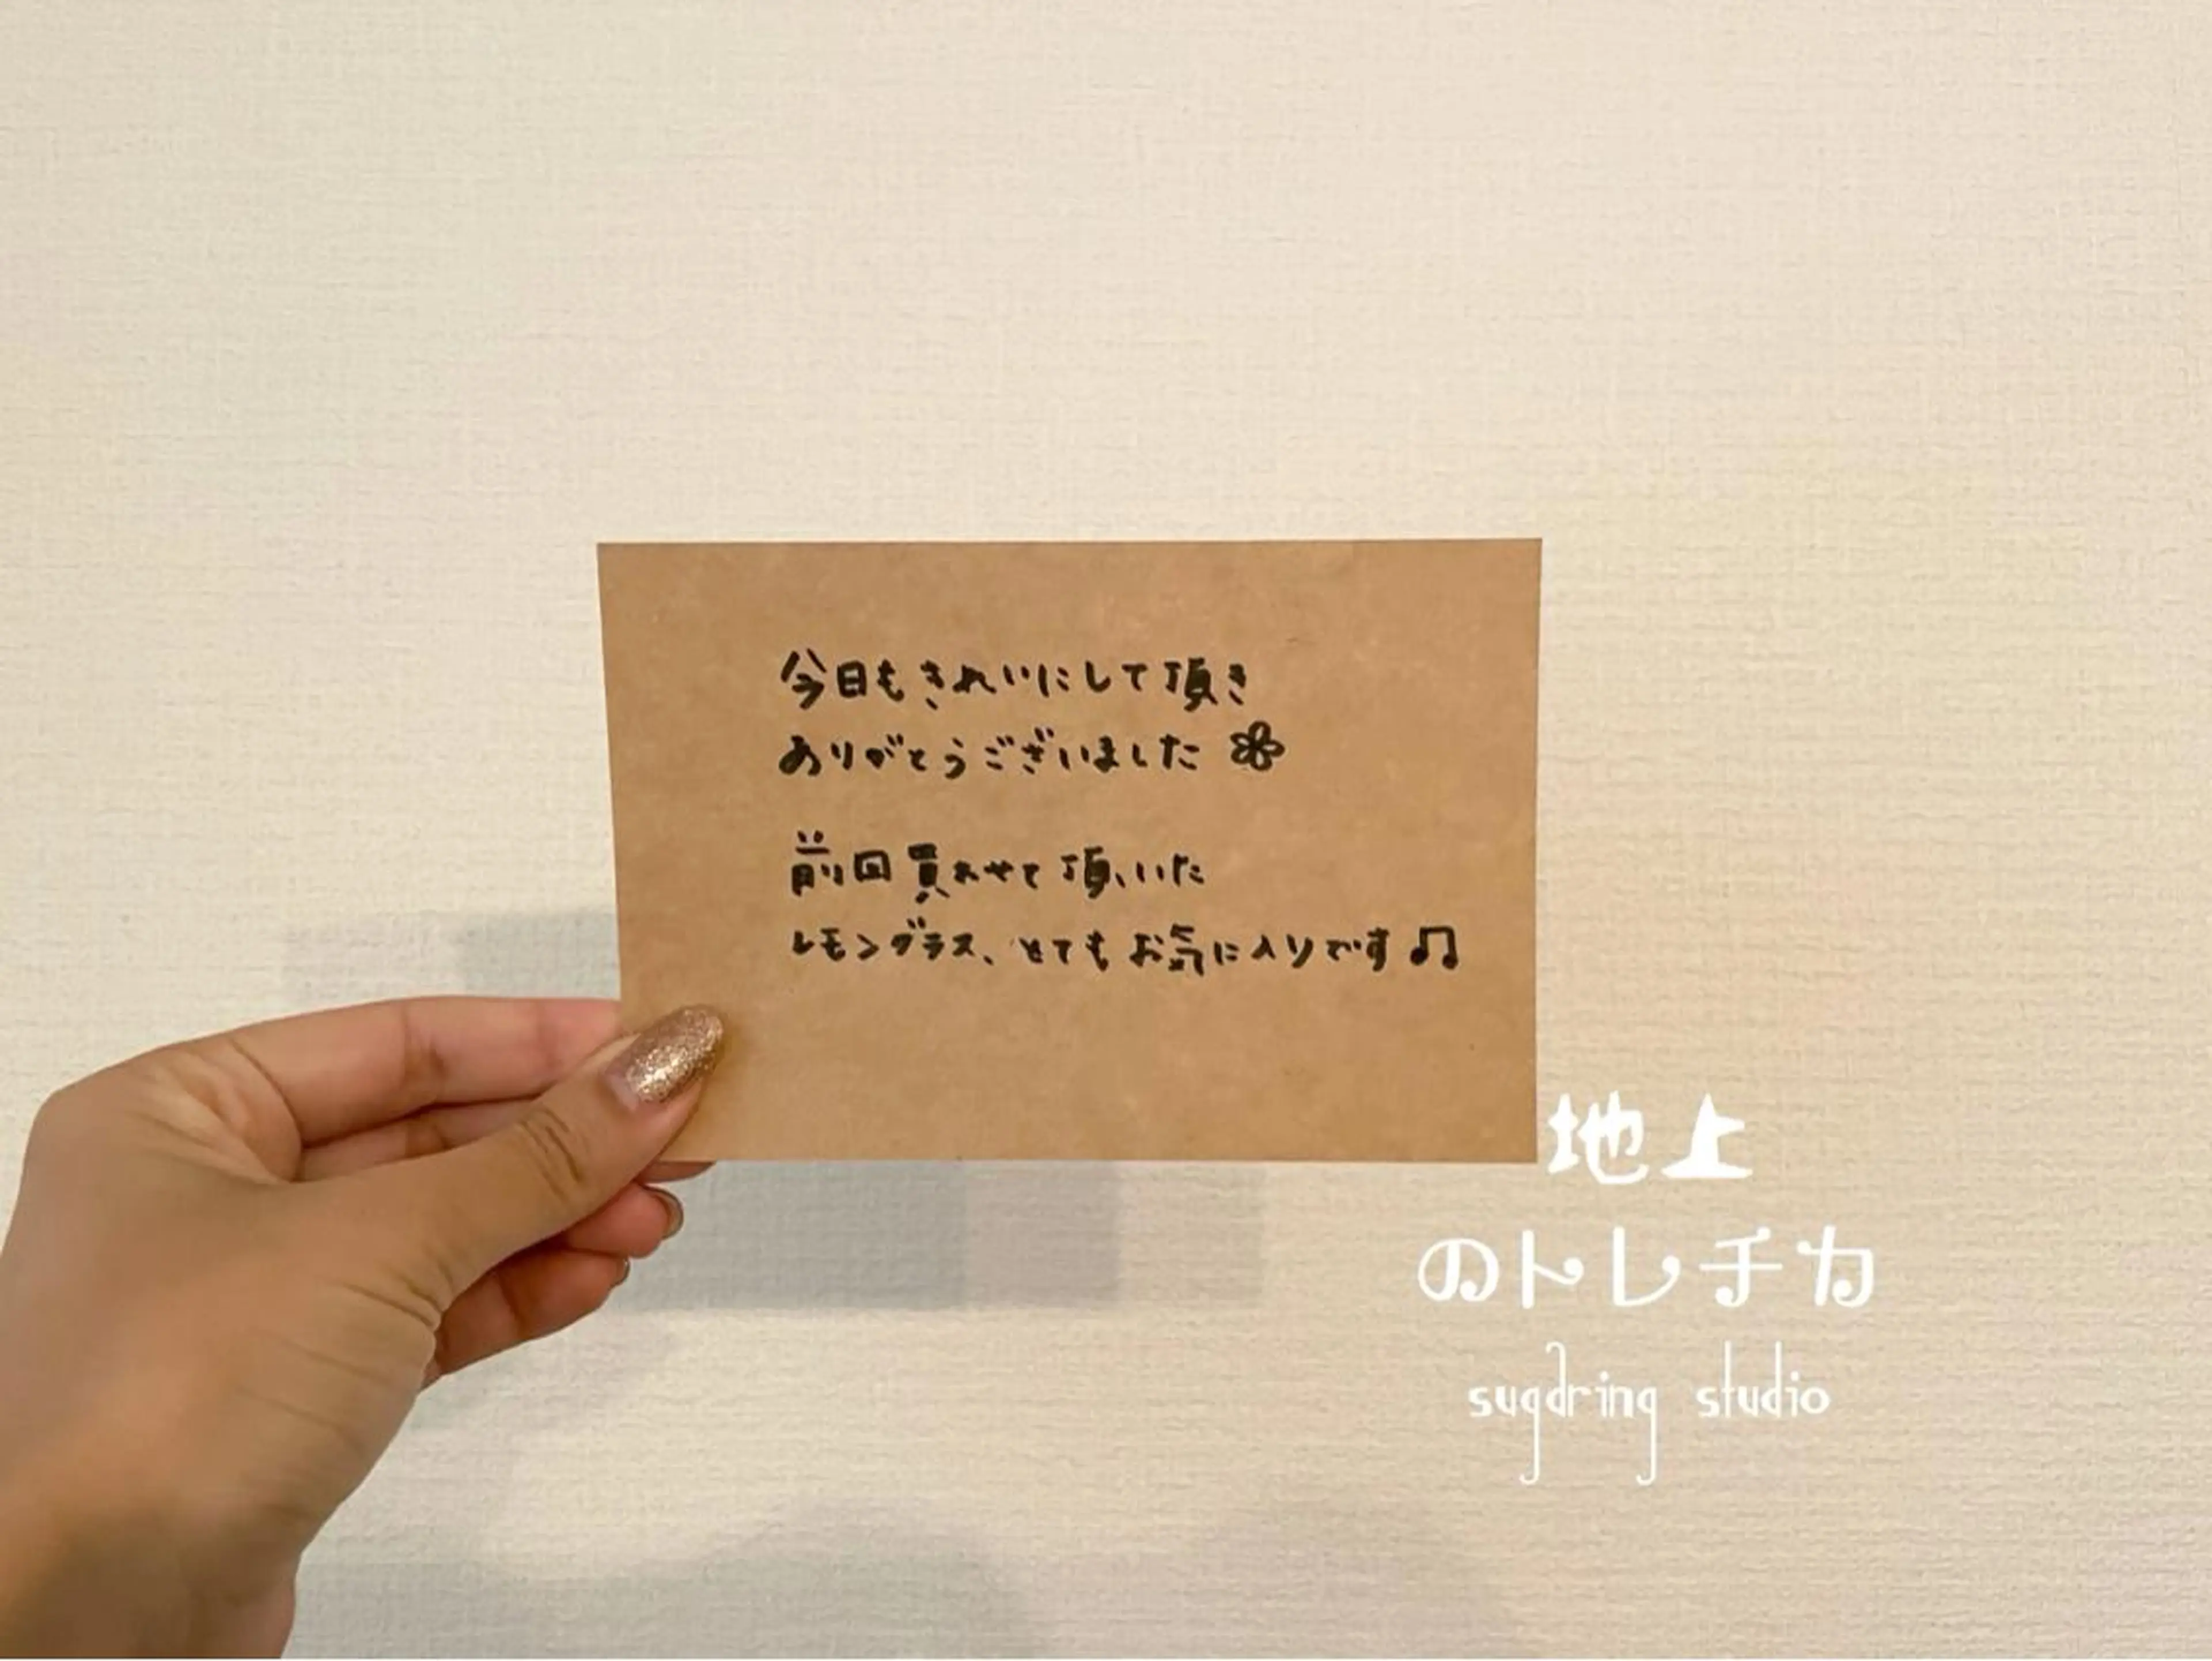 今日もきれいにして頂き
ありがとうございました
前回買わせて頂いた
レモングラス、とてもお気に入りです♫
地上
のトレチカ
sugdring studio